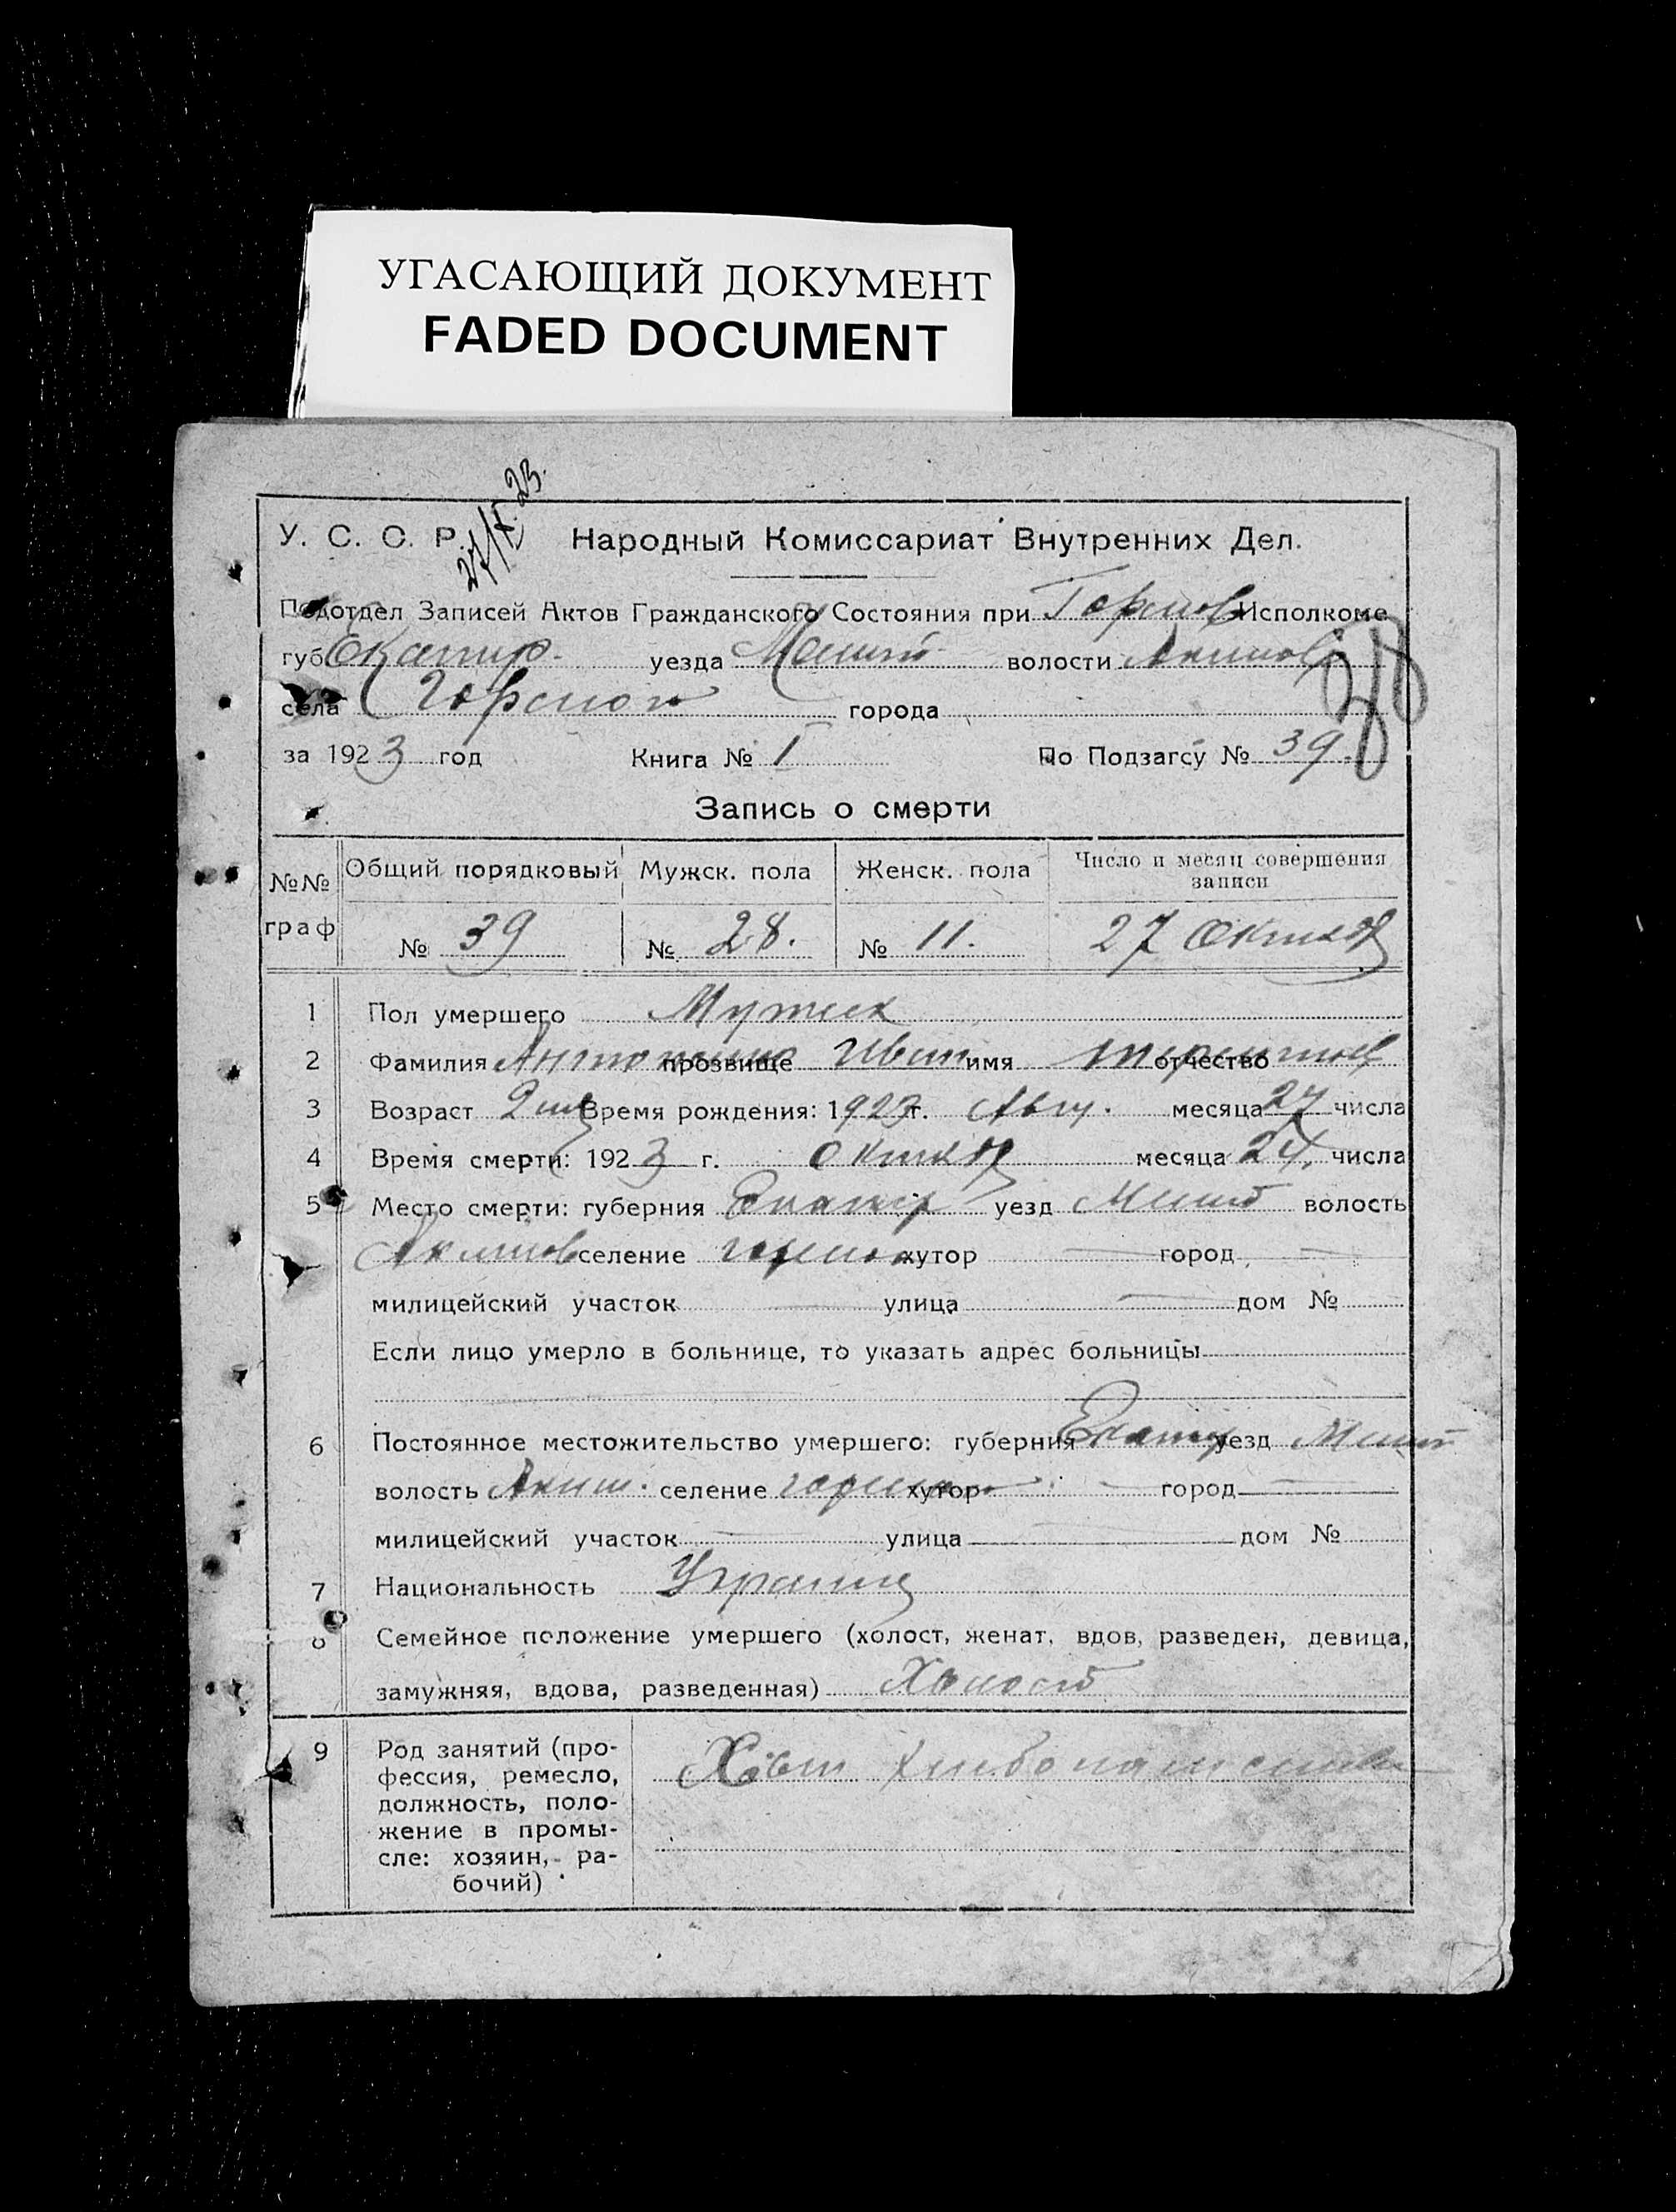 УГАСАЮЩИЙ ДОКУМЕНТ
FADED DOCUMENT
27/X 23.
У. С. С. Р. Народный Комиссариат Внутренних Дел.
Подотдел Записей Актов Гражданского Состояния при Горснов Исполкоме
губ. Екатир. уезда Мелит волости Акимов
села Горсног города
за 1923 год Книга № I По Подзагсу № 39.
Запись о смерти
№№ граф Общий порядковый Мужск. пола Женск. пола Число и месяц совершения записи
№ 39 № 28. № 11. 27 Октяб
1 Пол умершего Мужск
2 Фамилия прозвище Иван имя отчество
3 Возраст 2 Время рождения: 1923 г. Авгу. месяца 27 числа
4 Время смерти: 1923 г. Октяб месяца 24. числа
5 Место смерти: губерния Екатир уезд Мелит волость
Акимов селение хутор — город —
милицейский участок — улица — дом №
Если лицо умерло в больнице, то указать адрес больницы
6 Постоянное местожительство умершего: губерния Екатир уезд Мелит
волость Аким. селение хутор — город —
милицейский участок — улица — дом №
7 Национальность Украинц
8 Семейное положение умершего (холост, женат, вдов, разведен, девица,
замужняя, вдова, разведенная) Холост
9 Род занятий (про-
фессия, ремесло,
должность, поло-
жение в промы-
сле: хозяин, ра-
бочий)